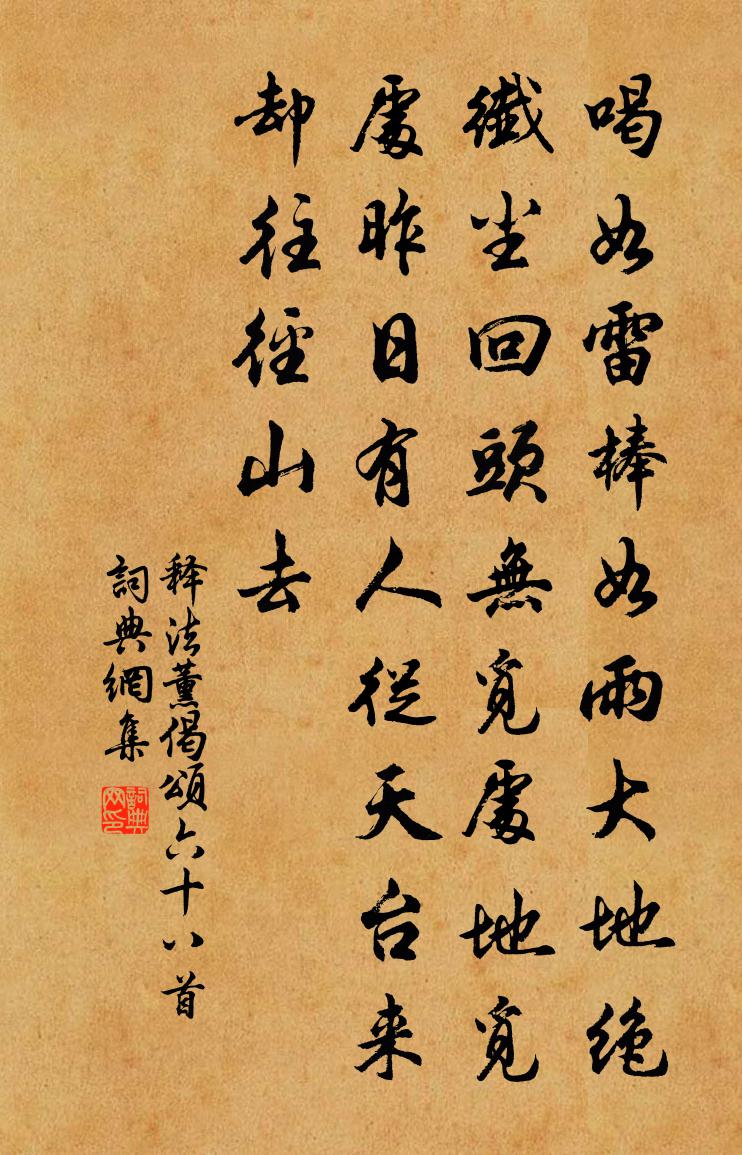 喝如雷棒如雨大地绝
纖尘回頭無覓處地覓
處昨日有人從天台来
却往徑山去
释法薰偈頌六十八首
詞典網集
詞典网印